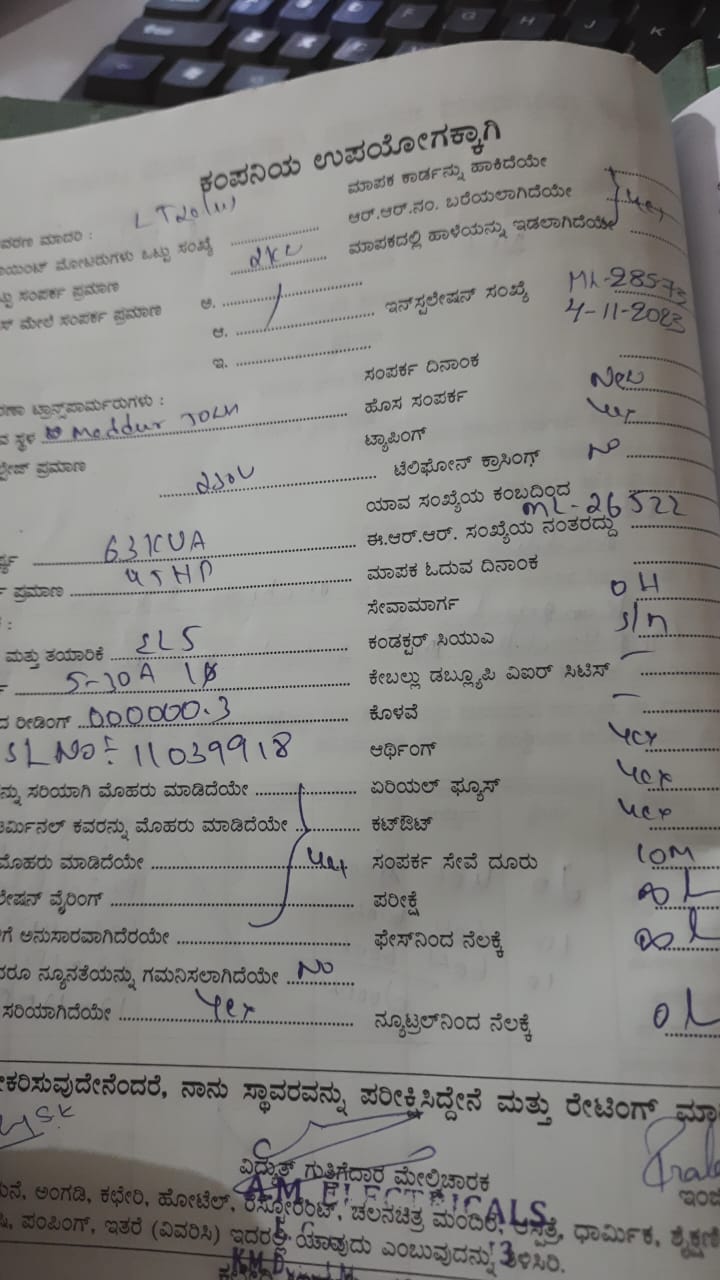 ಕಂಪನಿಯ ಉಪಯೋಗಕ್ಕಾಗಿ
ವರಣ ಮಾದರಿ : LT2a(ii) ಮಾಪಕ ಕಾರ್ಡನ್ನು ಹಾಕಿದೆಯೇ
ಯಿಂಟ್ ಮೋಟರುಗಳು ಒಟ್ಟು ಸಂಖ್ಯೆ ಆರ್.ಆರ್.ನಂ. ಬರೆಯಲಾಗಿದೆಯೇ yes
ಟ್ಟು ಸಂಪರ್ಕ ಪ್ರಮಾಣ 2KW ಮಾಪಕದಲ್ಲಿ ಹಾಳೆಯನ್ನು ಇಡಲಾಗಿದೆಯೇ
ಸ್ ಮೇಲೆ ಸಂಪರ್ಕ ಪ್ರಮಾಣ ಅ.
ಆ. ಇನ್‌ಸ್ಪಲೇಷನ್ ಸಂಖ್ಯೆ ML-28573
4-11-2023
ಇ.
ಸಂಪರ್ಕ ದಿನಾಂಕ
ರಣಾ ಟ್ರಾನ್ಸ್‌ಪಾರ್ಮರುಗಳು : ಹೊಸ ಸಂಪರ್ಕ New
ವ ಸ್ಥಳ Maddur ಟ್ಯಾಪಿಂಗ್ yes
ಲ್ಟೇಜ್ ಪ್ರಮಾಣ 230V ಟೆಲಿಫೋನ್ ಕ್ರಾಸಿಂಗ್ No
ಯಾವ ಸಂಖ್ಯೆಯ ಕಂಬದಿಂದ
63KVA ಈ.ಆರ್.ಆರ್. ಸಂಖ್ಯೆಯ ನಂತರದ್ದು ML-26522
ಪ್ರಮಾಣ 45HP ಮಾಪಕ ಓದುವ ದಿನಾಂಕ
ಸೇವಾಮಾರ್ಗ OH
ಮತ್ತು ತಯಾರಿಕೆ SLS ಕಂಡಕ್ಟರ್ ಸಿಯುಎ S/M
5-30A 1ϕ ಕೇಬಲ್ಲು ಡಬ್ಲ್ಯೂಪಿ ವಿಐರ್ ಸಿಟಿಸ್ –
ದ ರೀಡಿಂಗ್ 000000.3 ಕೊಳವೆ –
SL No: 11039918 ಆರ್ಥಿಂಗ್ yes
ನ್ನು ಸರಿಯಾಗಿ ಮೊಹರು ಮಾಡಿದೆಯೇ ಏರಿಯಲ್ ಫ್ಯೂಸ್ yes
ರ್ಮಿನಲ್ ಕವರನ್ನು ಮೊಹರು ಮಾಡಿದೆಯೇ ಕಟ್‌ಔಟ್ yes
ಮೊಹರು ಮಾಡಿದೆಯೇ yes ಸಂಪರ್ಕ ಸೇವೆ ದೂರು 10M
ಲೇಷನ್ ವೈರಿಂಗ್ ಪರೀಕ್ಷೆ
ಗೆ ಅನುಸಾರವಾಗಿದೆರಯೇ ಫೇಸ್‌ನಿಂದ ನೆಲಕ್ಕೆ
ದರೂ ನ್ಯೂನತೆಯನ್ನು ಗಮನಿಸಲಾಗಿದೆಯೇ No
ಸರಿಯಾಗಿದೆಯೇ yes ನ್ಯೂಟ್ರಲ್‌ನಿಂದ ನೆಲಕ್ಕೆ
ೀಕರಿಸುವುದೇನೆಂದರೆ, ನಾನು ಸ್ಥಾವರವನ್ನು ಪರೀಕ್ಷಿಸಿದ್ದೇನೆ ಮತ್ತು ರೇಟಿಂಗ್ ಮಾ
ವಿದ್ಯುತ್ ಗುತ್ತಿಗೆದಾರ ಮೇಲ್ವಿಚಾರಕ
A.M. ELECTRICALS
ಮನೆ, ಅಂಗಡಿ, ಕಛೇರಿ, ಹೋಟೆಲ್, ರೆಸ್ಟೋರೆಂಟ್, ಚಲನಚಿತ್ರ ಮಂದಿರ, ಆಸ್ಪತ್ರೆ, ಧಾರ್ಮಿಕ, ಶೈಕ್ಷಣಿ
ಪಂಪಿಂಗ್, ಇತರೆ (ವಿವರಿಸಿ) ಇದರಲ್ಲಿ ಯಾವುದು ಎಂಬುವುದನ್ನು ತಿಳಿಸಿರಿ.